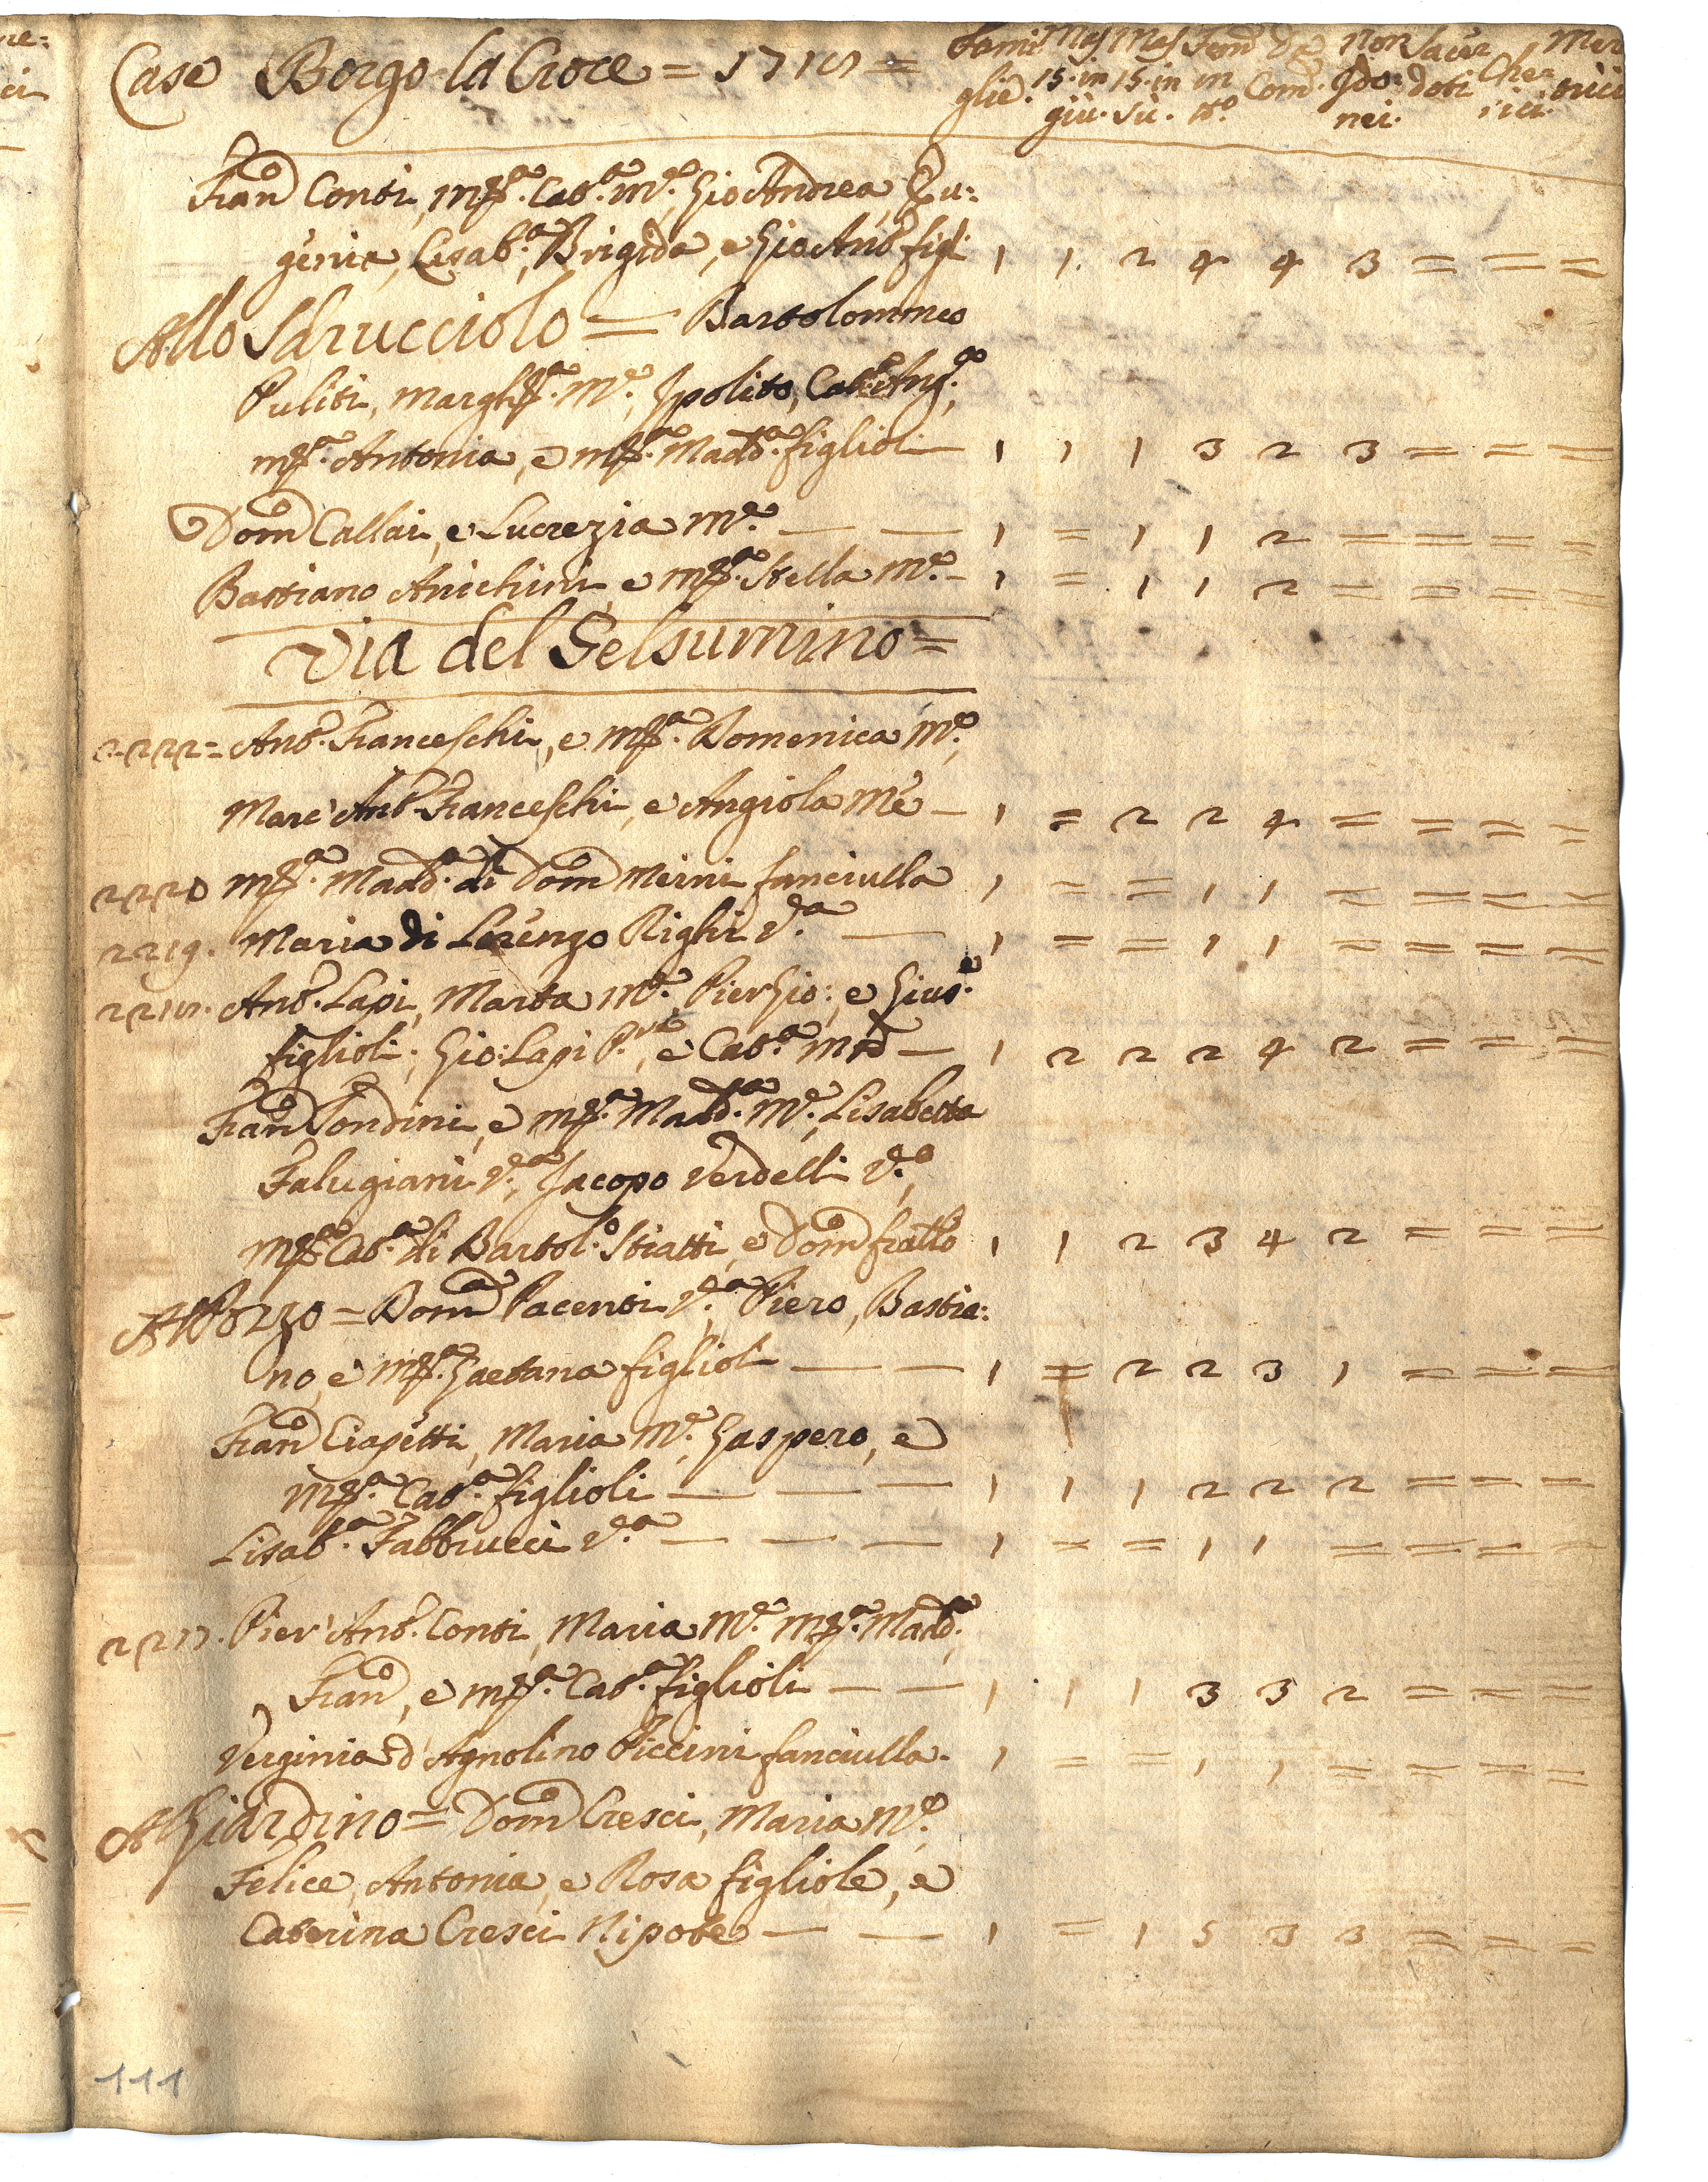 Case Borgo la Croce = 1718 =
Fami Mas Mas Fem Da non Sacer Che Mer
glie. 15. in 15. in in Com. Ido: doti rici. enici
giù. Sù. tto. nei.
Fran.co Conti, M.a Cat.a M.e, Gio Andrea, Eu:
genia, Lisab.a, Brigida, e Gio Ant.o figl. 1 1 2 4 4 3 = = =
Allo Sdrucciolo = Bartolommeo
Puliti, Margh.a M.e, Ipolito, Cat.a Ang.a,
M.a Antonia, e M.a Madd.a figlioli — 1 1 1 3 2 3 = = =
Dom.co Callai, e Lucrezia M.e — — 1 = 1 1 2 = = = =
Bastiano Anichini, e M.a Stella M.e — 1 = 1 1 2 = = = =
Via del Gelsumino =
222 = Ant.o Franceschi, e M.a Domenica M.e,
Marc' Ant.o Franceschi, e Angiola M.e — 1 = 2 2 4 = = = =
220 M.a Madd.a di Dom.co Meini fanciulla 1 = = 1 1 = = = =
219. Maria di Lorenzo Righi V.a — 1 = = 1 1 = = = =
218. Ant.o Lapi, Marta M.e, Pier Gio:, e Gius.e
figlioli; Gio: Lapi P.re, e Cat.a M.re — 1 2 2 2 4 2 = = =
Fran.co Tondini, e M.a Madd.a M.e, Lisabetta
Falugiani V.a, Jacopo Verdelli V.o,
M.a Cat.a di Bartol.o Stiatti, e Dom.co fratello 1 1 2 3 4 2 = = =
Al Pozzo = Dom.ca Pacenti V.a, Piero, Bastia:
no, e M.a Gaetana figlioli — — 1 = 2 2 3 1 = = =
Fran.co Ciapetti, Maria M.e, Gaspero, e
M.a Cat.a figlioli — — — 1 1 1 2 2 2 = = =
Lisab.a Fabbrucci V.a — — — 1 = = 1 1 = = = =
217. Pier' Ant.o Conti, Maria M.e M.a Madd.a,
Fran.co, e M.a Cat.a figlioli — — 1 1 1 3 3 2 = = =
Verginia d' Agnolino Piccini fanciulla. 1 = = 1 1 = = = =
Al Giardino = Dom.co Cresci, Maria M.e,
Felice, Antonia, e Rosa figliole, e
Caterina Cresci Nipote — — 1 = 1 5 3 3 = = =
111